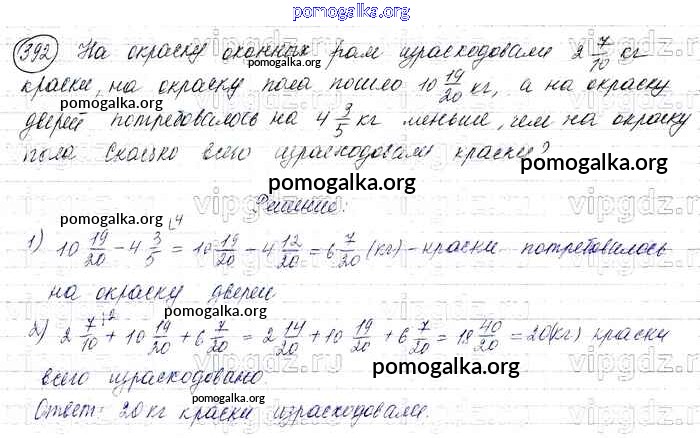 pomogalka.org
392 На окраску оконных рам израсходовали 2 7/10 кг
pomogalka.org
краски, на окраску пола пошло 10 19/20 кг, а на окраску
pomogalka.org
дверей потребовалось на 4 3/5 кг меньше, чем на окраску
пола. Сколько всего израсходовали краски?
pomogalka.org
pomogalka.org
Решение:
pomogalka.org
1) 10 19/20 - 4 3/5 = 10 19/20 - 4 12/20 = 6 7/20 (кг) - краски потребовалось
pomogalka.org
на окраску дверей
pomogalka.org
2) 2 7/10 + 10 19/20 + 6 7/20 = 2 14/20 + 10 19/20 + 6 7/20 = 18 40/20 = 20(кг) краски
pomogalka.org
всего израсходовано.
pomogalka.org
Ответ: 20 кг краски израсходовали.
pomogalka.org